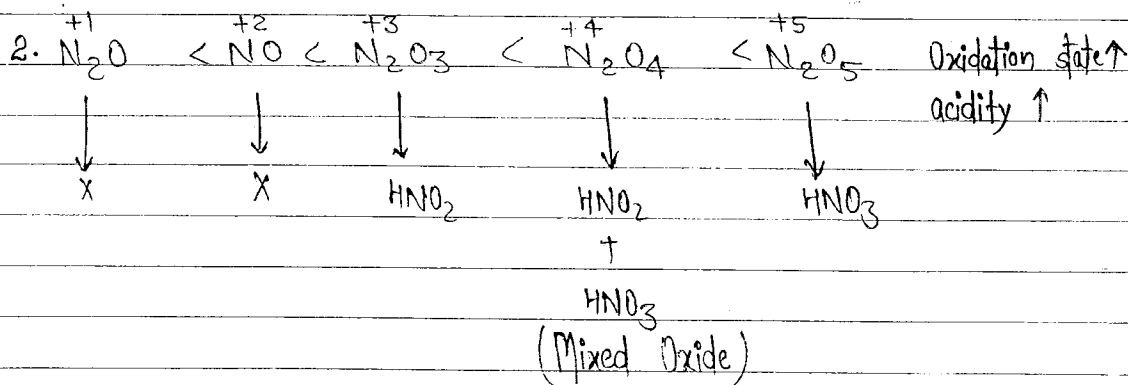 +1 +2 +3 +4 +5
2. N₂O < NO < N₂O₃ < N₂O₄ < N₂O₅ Oxidation state↑
acidity ↑
↓ ↓ ↓ ↓ ↓
X X HNO₂ HNO₂ HNO₃
+
HNO₃
(Mixed Oxide)